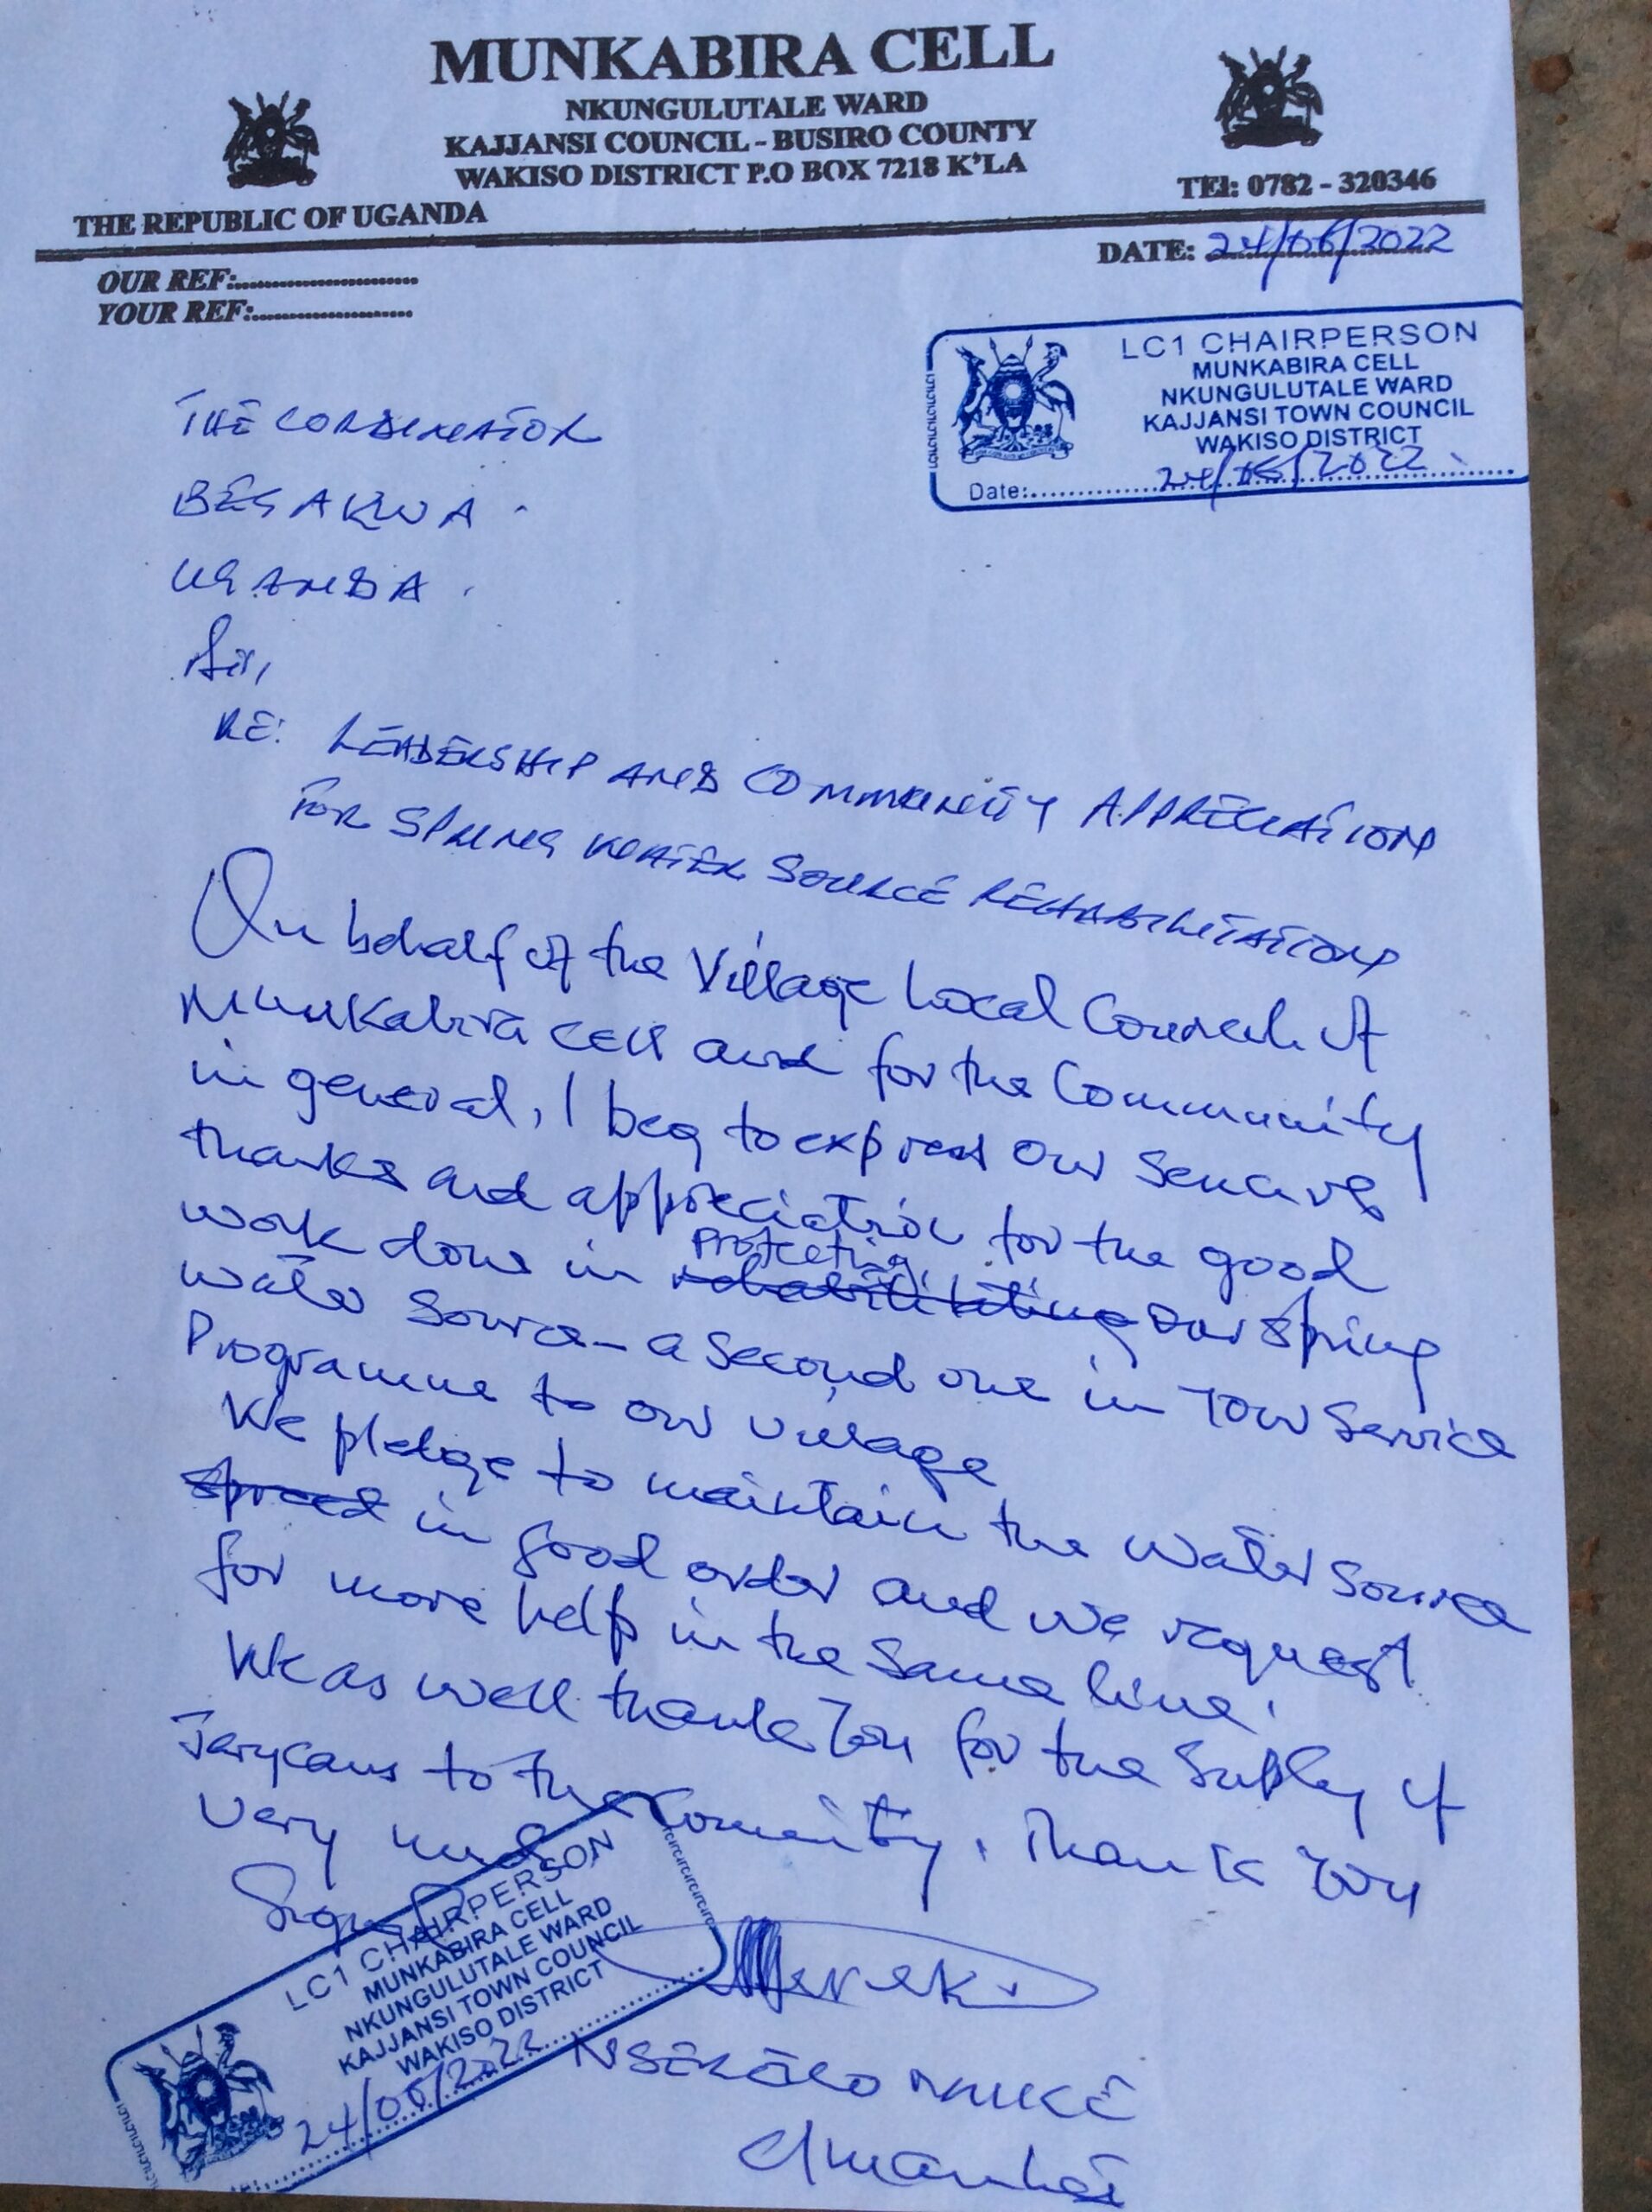 MUNKABIRA CELL
NKUNGULUTALE WARD
KAJJANSI COUNCIL - BUSIRO COUNTY
WAKISO DISTRICT P.O BOX 7218 K'LA
THE REPUBLIC OF UGANDA
TEl: 0782 - 320346
DATE: 24/06/2022
OUR REF:
YOUR REF:
LC1 CHAIRPERSON
MUNKABIRA CELL
NKUNGULUTALE WARD
KAJJANSI TOWN COUNCIL
WAKISO DISTRICT
Date: 24/06/2022
THE CORDINATOR
BEGAKWA.
UGANDA.
Sir,
RE: LEADERSHIP AND COMMUNITY APPRECIATION
FOR SPRING WATER SOURCE REHABILITATION
On behalf of the Village Local Council of
Munkabira cell and for the Community
in general, I beg to express our sencire
thanks and appreciation for the good
work done in protecting rehabilitating our spring
water source - a second one in your service
Programme to our village
We pledge to maintain the water source
spread in good order and we request
for more help in the same line.
We as well thank you for the supply of
Jerycans to the Comunity. Thank you
very much
Signed
LC1 CHAIRPERSON
MUNKABIRA CELL
NKUNGULUTALE WARD
KAJJANSI TOWN COUNCIL
WAKISO DISTRICT
24/06/2022
NSEREKO MIKE